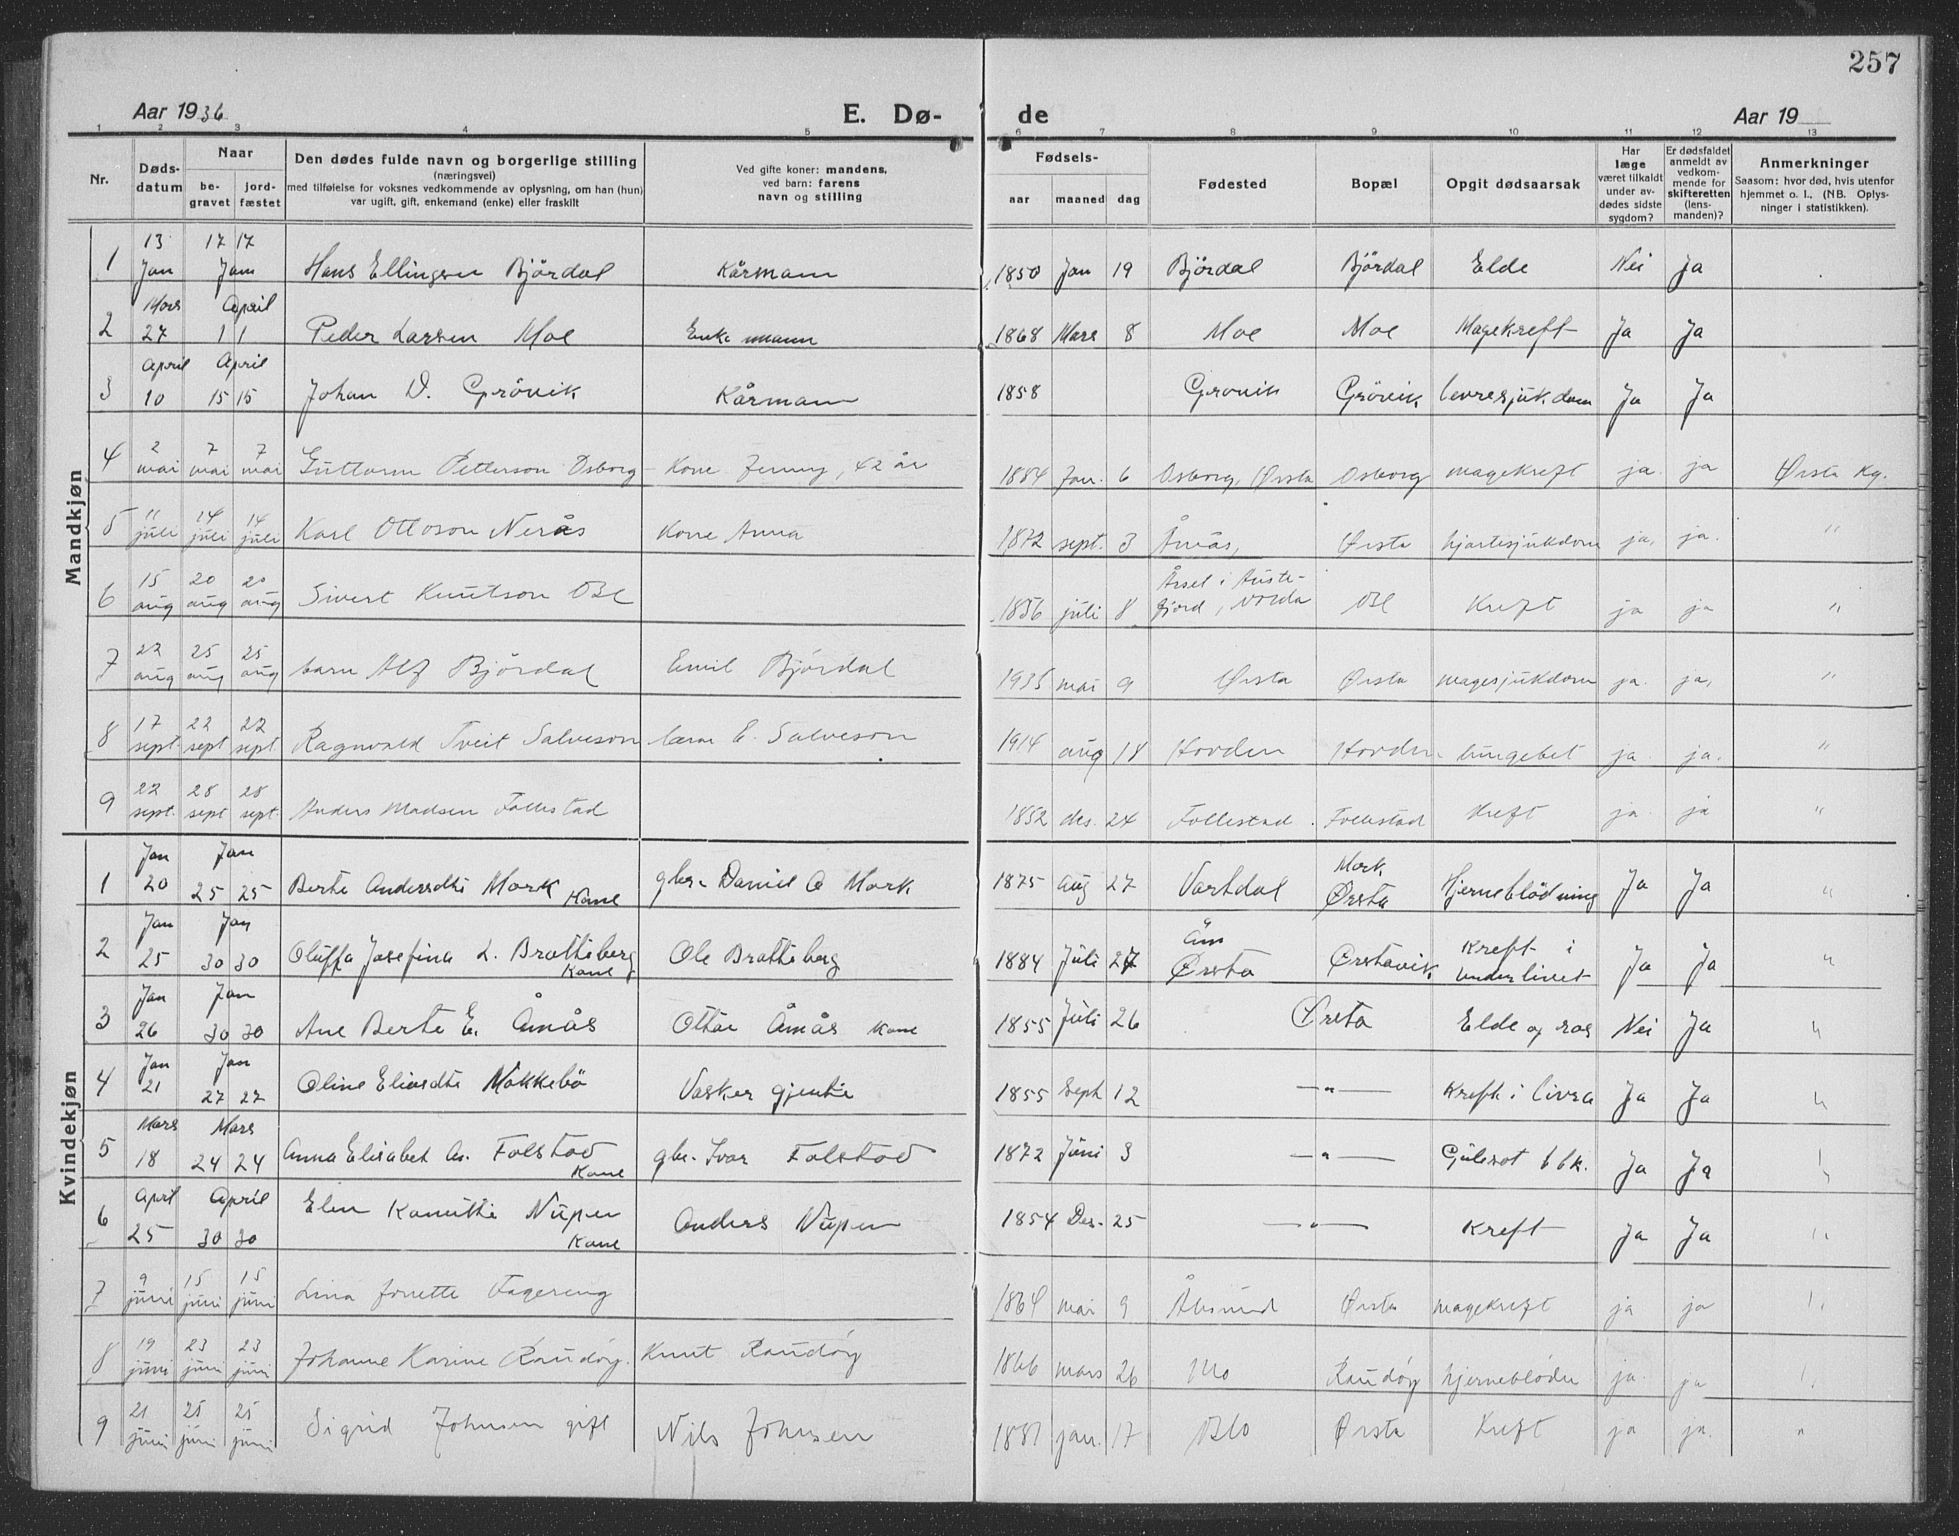 257
Aar 1936 E. Dø- de Aar 19
1 2 3 4 5 6 7 8 9 10 11 12 13
Nr. Døds-datum Naar be-gravet jord-fæstet Den dødes fulde navn og borgerlige stilling (næringsvei) med tilføielse for voksnes vedkommende av oplysning, om han (hun) var ugift, gift, enkemand (enke) eller fraskilt Ved gifte koner: mandens, ved barn: farens navn og stilling Fødsels- aar maaned dag Fødested Bopæl Opgit dødsaarsak Har læge været tilkaldt under av-dødes sidste sygdom? Er dødsfaldet anmeldt av vedkom-mende for skifteretten (lens-manden)? Anmerkninger Saasom: hvor død, hvis utenfor hjemmet o. l., (NB. Oplys-ninger i statistikken).
Mandkjøn
1 13 Jan 17 17 Jan Hans Ellingsen Björdal Kårmann 1850 Jan 19 Björdal Björdal Elde Nei Ja
2 Mars 27 April 1 1 Peder Larsen Moe Enkemann 1868 Mars 8 Moe Moe Magekreft Ja Ja
3 April 10 April 15 15 Johan D. Grövik Kårmann 1858 Grovik Grövik levresjukdom Ja Ja
4 2 mai 7 mai 7 mai Guttorm Petterson Osborg Kone Jenny, 42 år 1884 Jan. 6 Osborg, Ørsta Osborg magekreft ja. ja Ørsta Kg.
5 11 juli 14 juli 14 juli Karl Ottoson Nerås Kone Anna 1872 sept. 3 Åmås, Ørsta hjartesjukdom ja, ja. "
6 15 aug 20 aug 20 aug Sivert Knutson 1856 juli 8 Årset i Auste-fjord, Vorda Kreft ja ja "
7 22 aug 25 aug 25 aug barn Alf Bjørdal Emil Bjørdal 1935 mai 9 Ørsta Ørsta magesjukdom ja. ja, "
8 17 sept. 22 sept 22 sept. Ragnvald Tveit Salveson lærar E. Salveson 1914 aug 18 Hovden Hovden lungebet ja. ja. "
9 22 sept. 28 sept 28 sept. Anders Madsen Follestad 1852 des. 24 Follestad Follestad kreft ja. ja "
Kvindekjøn
1 Jan 20 Jan 25 25 Berte Andersdtr Mork Kone gbr. Daniel A Mork 1875 Aug 27 Vartdal Mork Ørsta Hjerneblödning Ja Ja "
2 Jan 25 Jan 30 30 Oluffa Josefina L. Bratteberg Kone Ole Bratteberg 1884 Juli 27 Åm Ørsta Ørstavik Kreft i Underlivet Ja Ja "
3 Jan 26 Jan 30 30 Ane Berte E. Åmås Ottar Åmås Kone 1855 Juli 26 Ørsta Elde og ros Nei Ja "
4 Jan 21 Jan 27 27 Oline Eliasdtr Mokkebö Vasker gjente 1855 Sept 12 —"— Kreft i livra Ja Ja "
5 Mars 18 Mars 24 24 Anna Elisabet As. Folstad Kone gbr. Ivar Folstad 1872 Juni 3 —"— Gulsot Ja Ja "
6 April 25 April 30 30 Elen Kanutte Nupen Kone Anders Nupen 1854 Des. 25 —"— Kreft Ja Ja "
7 9 juni 15 juni 15 juni Lina Jonette Fagereng 1864 mai 9 Ålesund Ørsta magekreft ja ja "
8 19 juni 23 juni 23 juni Johanne Karine Raudøy. Knut Raudøy 1866 mars 26 Mo Raudøy hjernebløder ja. ja "
9 21 juni 25 juni 25 juni Sigrid Johnsen gift Nils Johnsen 1881 jan. 17 Oslo Ørsta Kreft ja ja. "